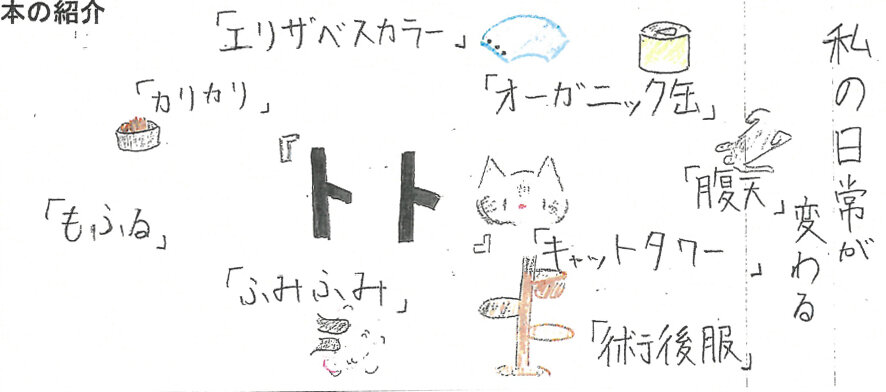 本の紹介
私の日常が
変わる
「エリザベスカラー」
「カリカリ」
「オーガニック缶」
『トト』
「腹天」
「もふる」
「キャットタワー」
「ふみふみ」
「術後服」